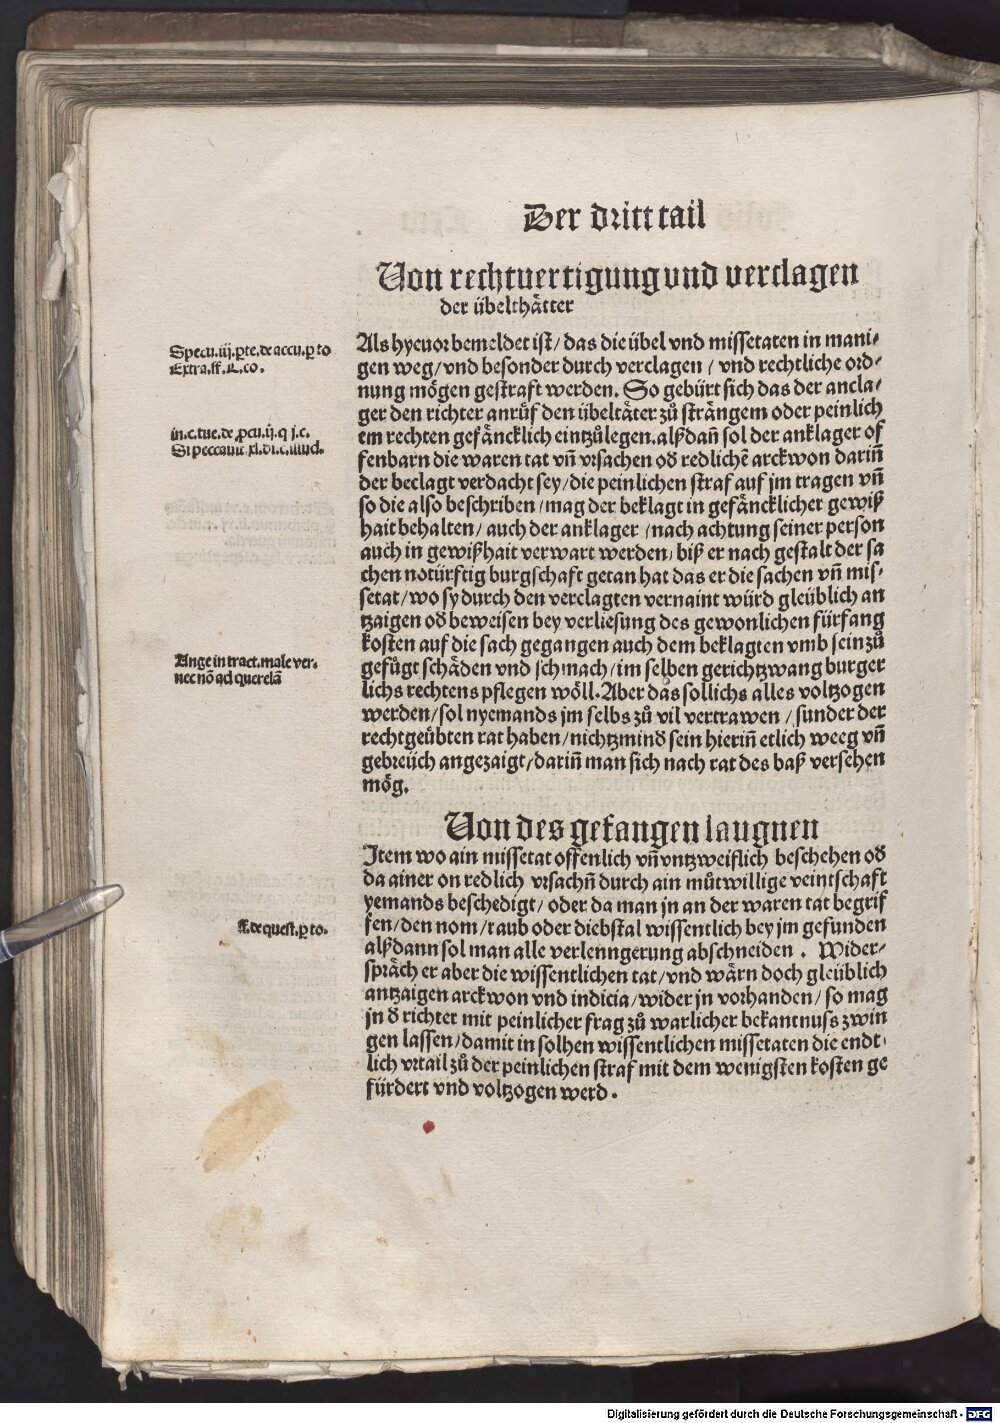 Der dritt tail
Von rechtuertigung vnd verclagen
der übelthätter
Specu. iij. ꝑte. de accu. ꝑ to
Extra. ff. ⁊. co.
Als hyeuor bemeldet ist/ das die übel vnd missetaten in mani-
gen weg/ vnd besonder durch verclagen / vnd rechtliche ord-
nung mögen gestraft werden. So gebürt sich das der ancla-
ger den richter anrůf den übeltäter zů strängem oder peinlich
em rechten gefäncklich eintzůlegen. alßdañ sol der anklager of
fenbarn die waren tat vñ vrsachen oď redlichē arckwon dariñ
der beclagt verdacht sey/ die peinlichen straf auf jm tragen vñ
so die also beschriben/ mag der beklagt in gefäncklicher gewiß
hait behalten/ auch der anklager / nach achtung seiner person
auch in gewißhait verwart werden/ biß er nach gestalt der sa
chen notürftig burgschaft getan hat das er die sachen vñ mis-
setat/ wo sy durch den verclagten vernaint würd gleüblich an
tzaigen oď beweisen bey verliesung des gewonlichen fürfang
kosten auf die sach gegangen auch dem beklagten vmb sein zů
gefůgt schäden vnd schmach/ im selben gerichtzwang burger
lichs rechtens pflegen wöll. Aber das sollichs alles voltzogen
werden/ sol nyemands jm selbs zů vil vertrawen / sunder der
rechtgeübten rat haben/ nichtzminď sein hieriñ etlich weeg vñ
gebreüch angezaigt/ dariñ man sich nach rat des baß versehen
mög.
in. c. tue. de ꝓcu. ij. q j. c.
Si peccauit
Ange in tract. male ver-
nec nō ad querelā
Von des gefangen laugnen
Item wo ain missetat offenlich vñ vntzweiflich beschehen oď
da ainer on redlich vrsachñ durch ain můtwillige veintschaft
yemands beschedigt/ oder da man jn an der waren tat begrif
fen/ den nom/ raub oder diebstal wissentlich bey jm gefunden
alßdann sol man alle verlenngerung abschneiden . Wider-
spräch er aber die wissentlichen tat/ vnd wärn doch gleüblich
antzaigen arckwon vnd indicia/ wider jn vorhanden/ so mag
jn ď richter mit peinlicher frag zů warlicher bekantnuss zwin
gen lassen/ damit in solhen wissentlichen missetaten die endt-
lich vrtail zů der peinlichen straf mit dem wenigsten kosten ge
fürdert vnd voltzogen werd .
ff. de quest. ꝑ to.
Digitalisierung gefördert durch die Deutsche Forschungsgemeinschaft - DFG